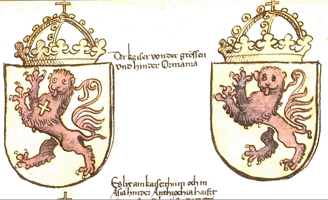 Der kaiser von der grossen
vnd hinder Ormania
Es lit ain kaiserthum och in
Asia hinder Anthiochia haist